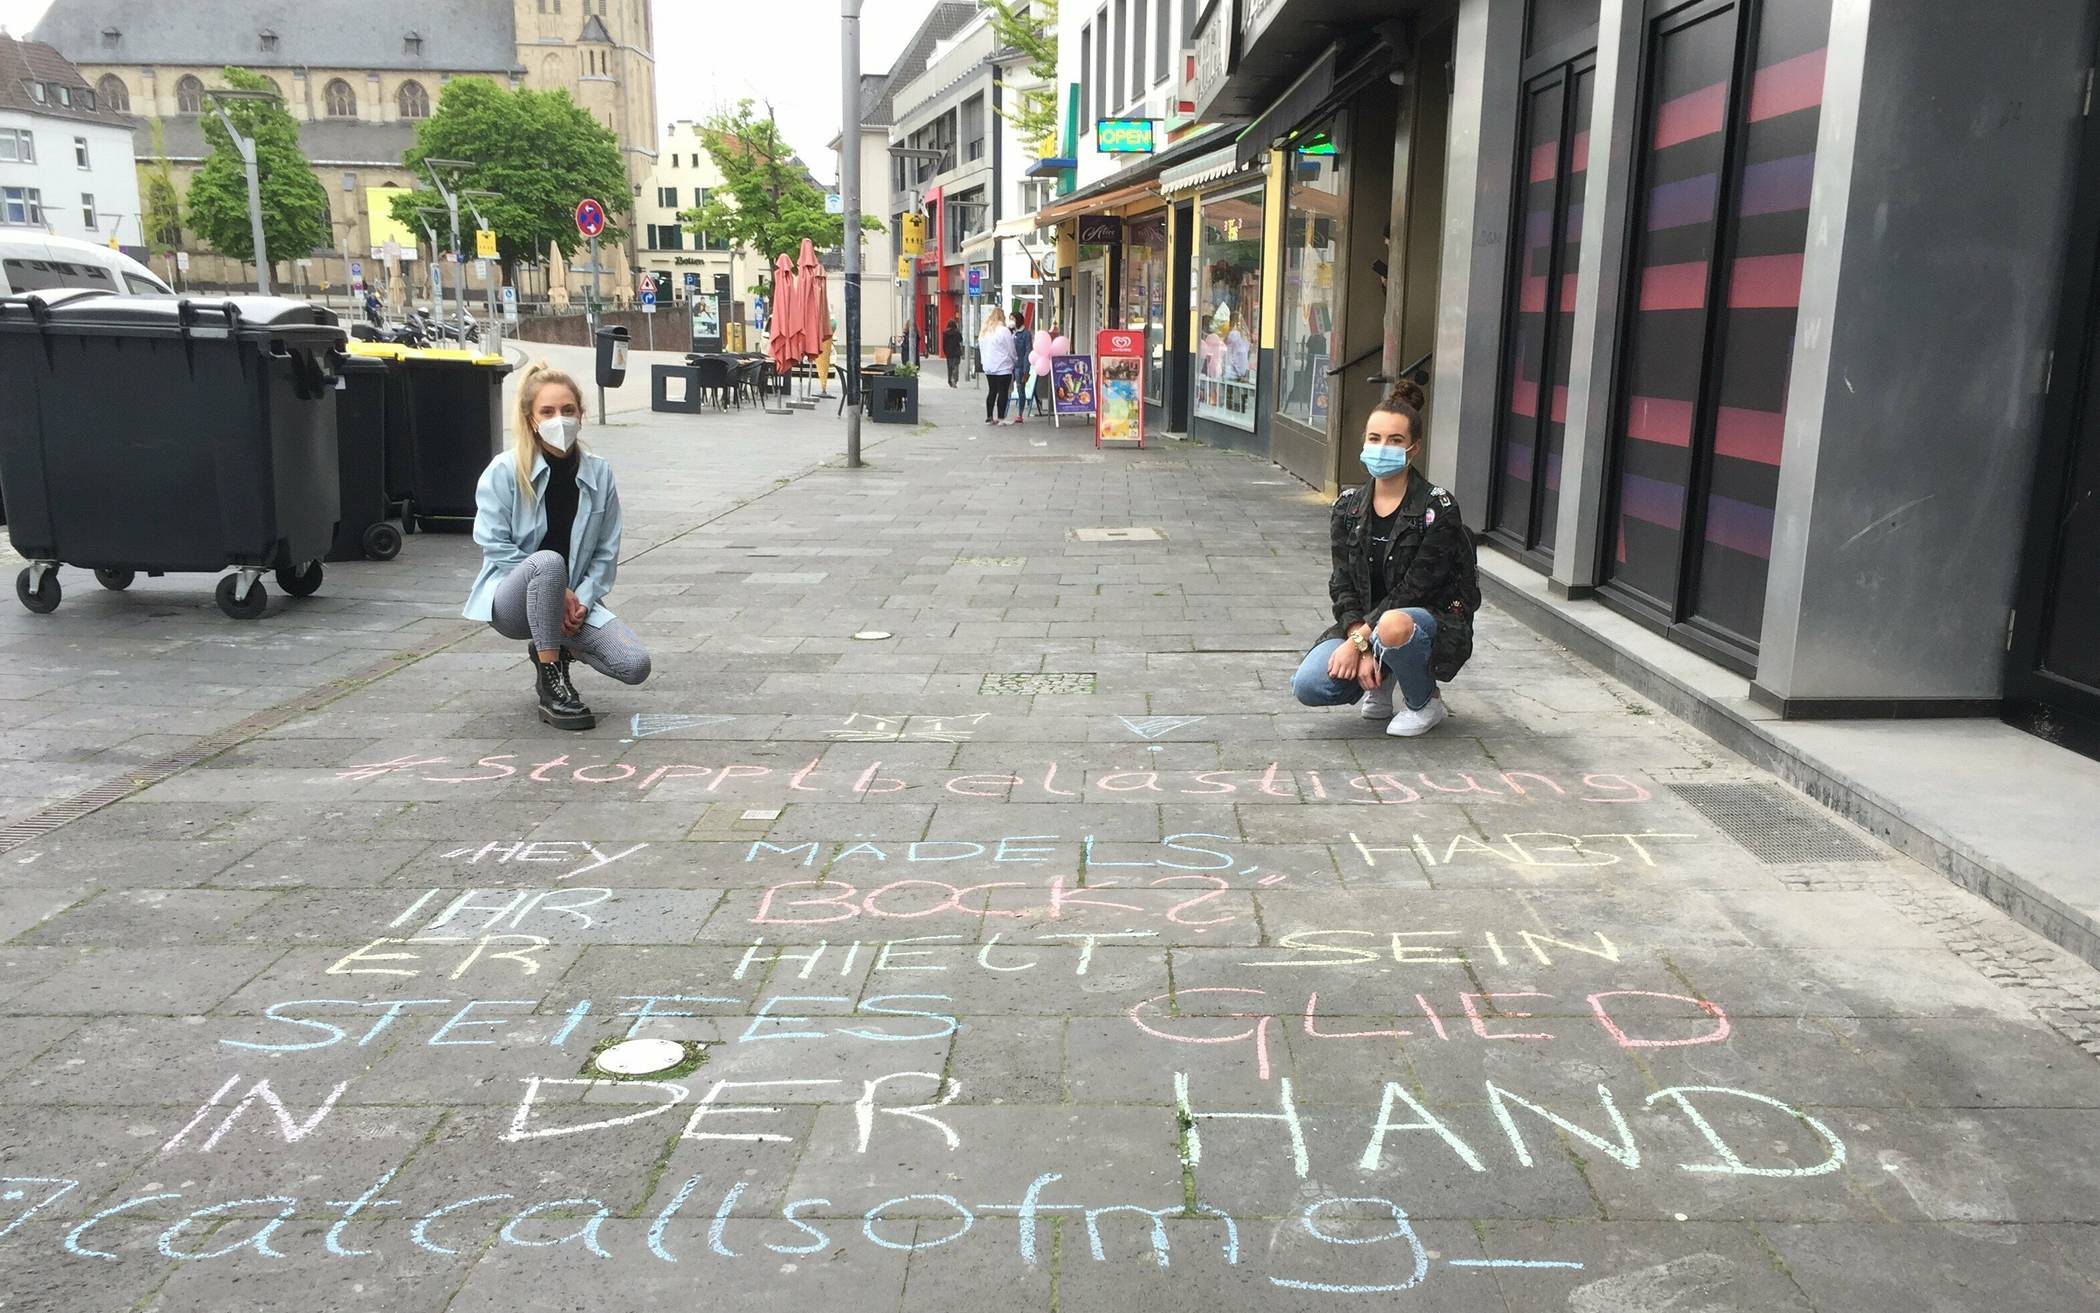 OPEN
Alice
Bolten
TAXI
#stopptbelästigung
„HEY MÄDELS, HABT
IHR BOCK?"
ER HIELT SEIN
STEIFES GLIED
IN DER HAND
catcallsofmg_